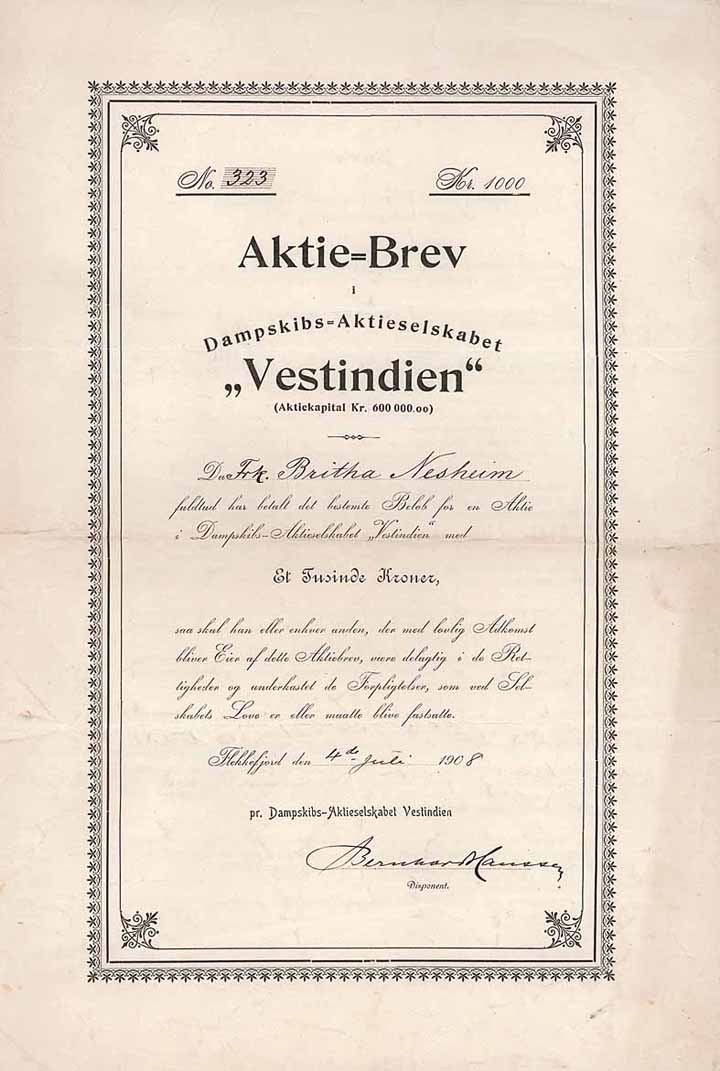 No. 323 Kr. 1000
Aktie=Brev
i
Dampskibs=Aktieselskabet
„Vestindien“
(Aktiekapital Kr. 600 000.00)
Da Frk. Britha Nesheim
fuldtud har betalt det bestemte Beløb for en Aktie
i Dampskibs-Aktieselskabet „Vestindien“ med
Et Tusinde Kroner,
saa skal han eller enhver anden, der med lovlig Adkomst
bliver Eier af dette Aktiebrev, være delagtig i de Ret-
tigheder og underkastet de Forpligtelser, som ved Sel-
skabets Love er eller maatte blive fastsatte.
Flekkefjord den 4de Juli 1908
pr. Dampskibs-Aktieselskabet Vestindien
Bernhard Hanssen
Disponent.